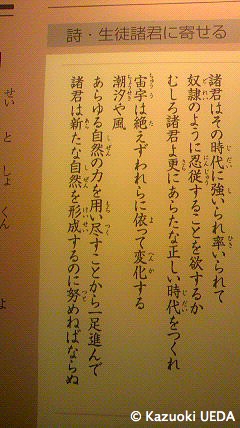 詩・生徒諸君に寄せる
諸君はその時代に強いられ率いられて
奴隷のように忍従することを欲するか
むしろ諸君よ更にあらたな正しい時代をつくれ
宙宇は絶えずわれらに依って変化する
潮汐や風
あらゆる自然の力を用い尽すことから一足進んで
諸君は新たな自然を形成するのに努めねばならぬ
せい と しょ くん よ
© Kazuoki UEDA